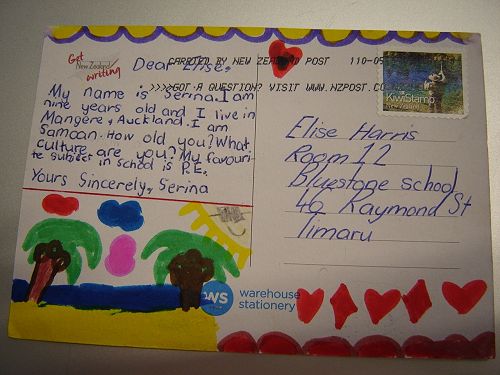 Get
New Zealand
writing
CARRIED BY NEW ZEALAND POST 110-05
>>>>GOT A QUESTION? VISIT WWW.NZPOST.CO.NZ
Dear Elise,
My name is Serina. I am
nine years old and I live in
Mangere, Auckland. I am
Samoan. How old you? What
culture are you? My favouri-
te subject in school is P.E.
Yours Sincerely, Serina
KiwiStamp
New Zealand
Elise Harris
Room 12
Bluestone school
Raymond St
Timaru
WS
warehouse
stationery